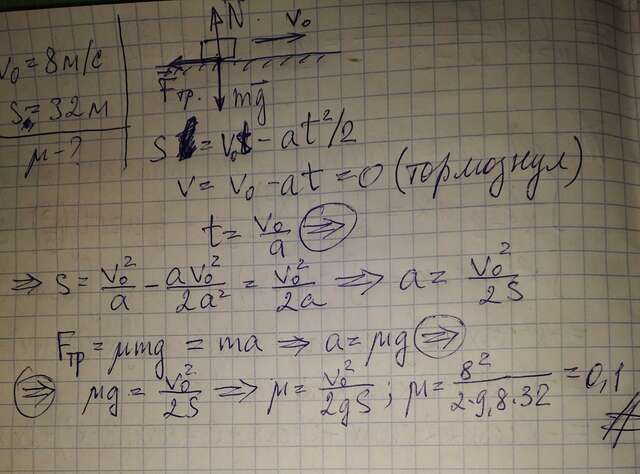 N
v₀
v₀ = 8 м/с
S = 32 м
μ - ?
Fтр.
mg
S = v₀t - at²/2
v = v₀ - at = 0 (тормознул)
t = v₀/a ⇒
⇒ S = v₀²/a - av₀²/2a² = v₀²/2a ⇒ a = v₀²/2S
Fтр = μmg = ma ⇒ a = μg ⇒
⇒ μg = v₀²/2S ⇒ μ = v₀²/2gS ; μ = 8²/2·9,8·32 = 0,1